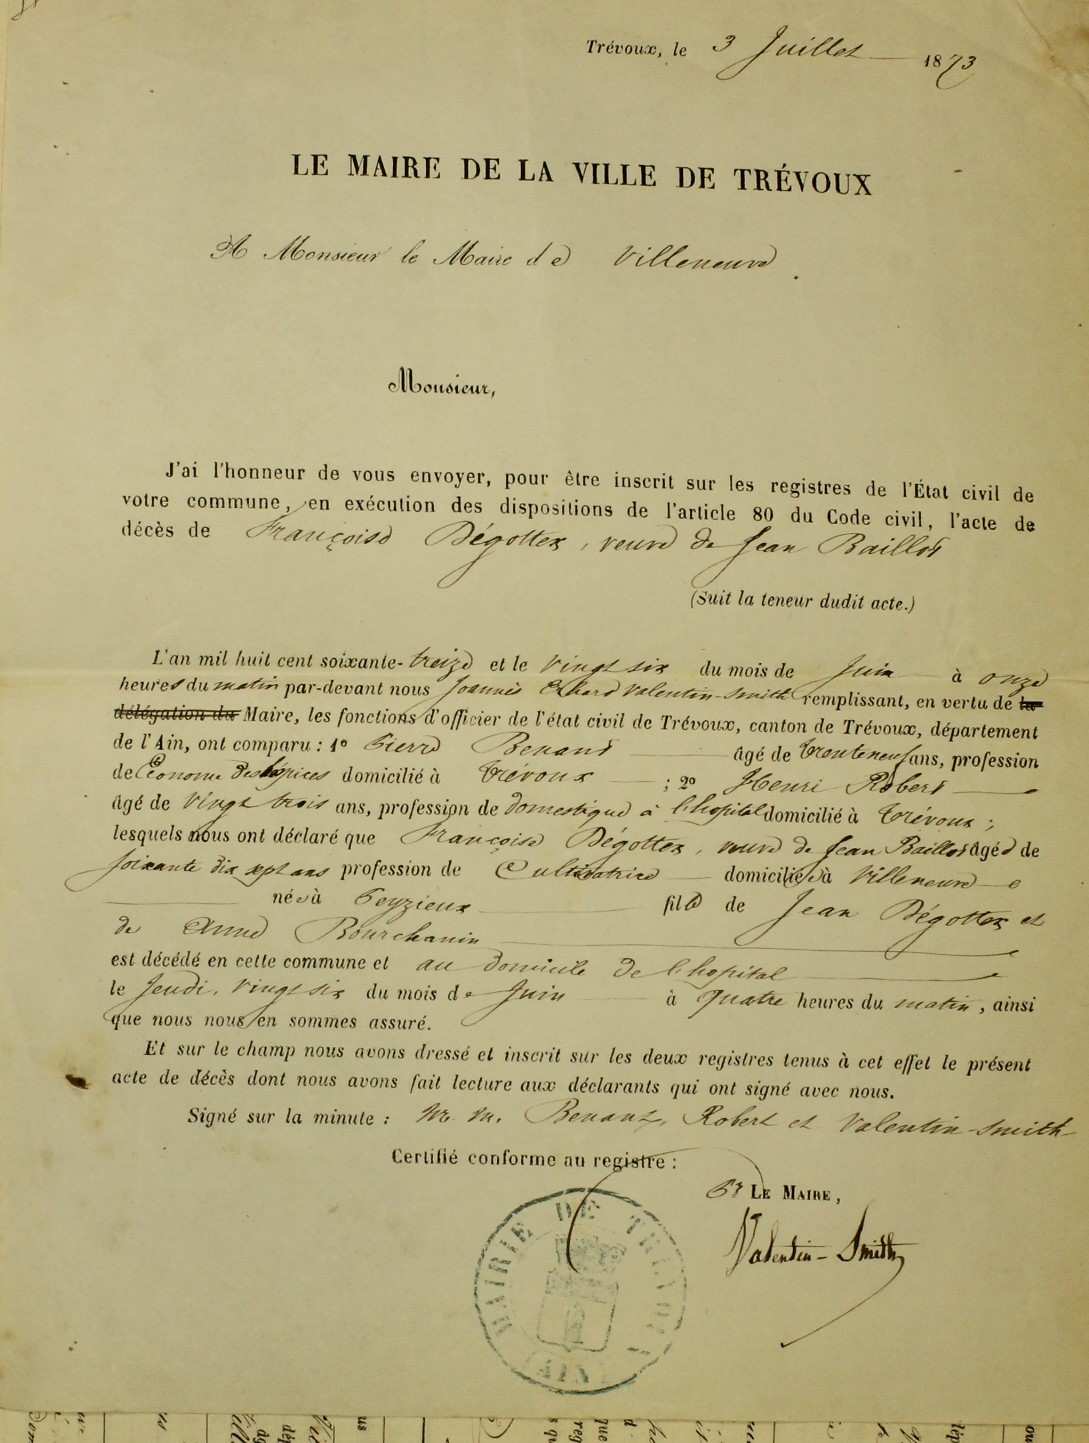 Trévoux, le 3 Juillet 1873
LE MAIRE DE LA VILLE DE TRÉVOUX
A Monsieur le Maire de Villeneuve
Monsieur,
J'ai l'honneur de vous envoyer, pour être inscrit sur les registres de l'État civil de
votre commune, en exécution des dispositions de l'article 80 du Code civil, l'acte de
décès de Françoise Dégottex, veuve de Jean Baillot
(Suit la teneur dudit acte.)
L'an mil huit cent soixante-treize et le vingt six du mois de Juin à onze
heures du matin par-devant nous Joannès Erhard Valentin-Smith remplissant, en vertu de la
délégation du Maire, les fonctions d'officier de l'état civil de Trévoux, canton de Trévoux, département
de l'Ain, ont comparu : 1º Pierre Benant âgé de trente neuf ans, profession
de Econome des hospices domicilié à Trévoux ; 2º Henri Robert
âgé de vingt trois ans, profession de domestique à l'hopital domicilié à Trévoux ;
lesquels nous ont déclaré que Françoise Dégottex, veuve de Jean Baillot âgée de
soixante dix sept ans profession de Cultivatrice domiciliée à Villeneuve
née à Peyzieux fille de Jean Dégottex et
de Anne Bourchanin
est décédé en cette commune et au domicile de l'hopital
le Jeudi, vingt six du mois de Juin à quatre heures du matin, ainsi
que nous nous en sommes assuré.
Et sur le champ nous avons dressé et inscrit sur les deux registres tenus à cet effet le présent
acte de décès dont nous avons fait lecture aux déclarants qui ont signé avec nous.
Signé sur la minute : M. M. Benant, Robert et Valentin-Smith
Certifié conforme au registre :
Pr LE MAIRE,
Valentin-Smith
MAIRIE DE TREVOUX
(AIN)